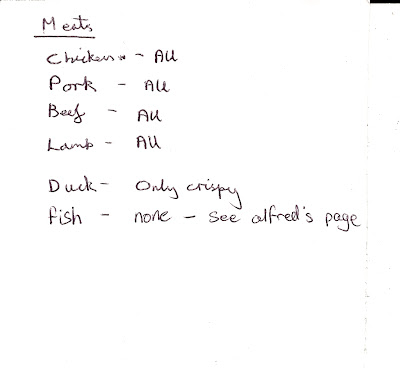 Meats
Chicken - All
Pork - All
Beef - All
Lamb - All
Duck - Only crispy
fish - none - see alfred's page